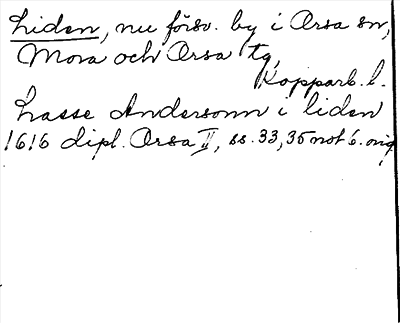 Liden, nu försv. by i Orsa sn,
Mora och Orsa tg,
Kopparb. l.
Lasse Andersonn i liden
1616 dipl. Orsa II, ss. 33, 35 not 6. orig